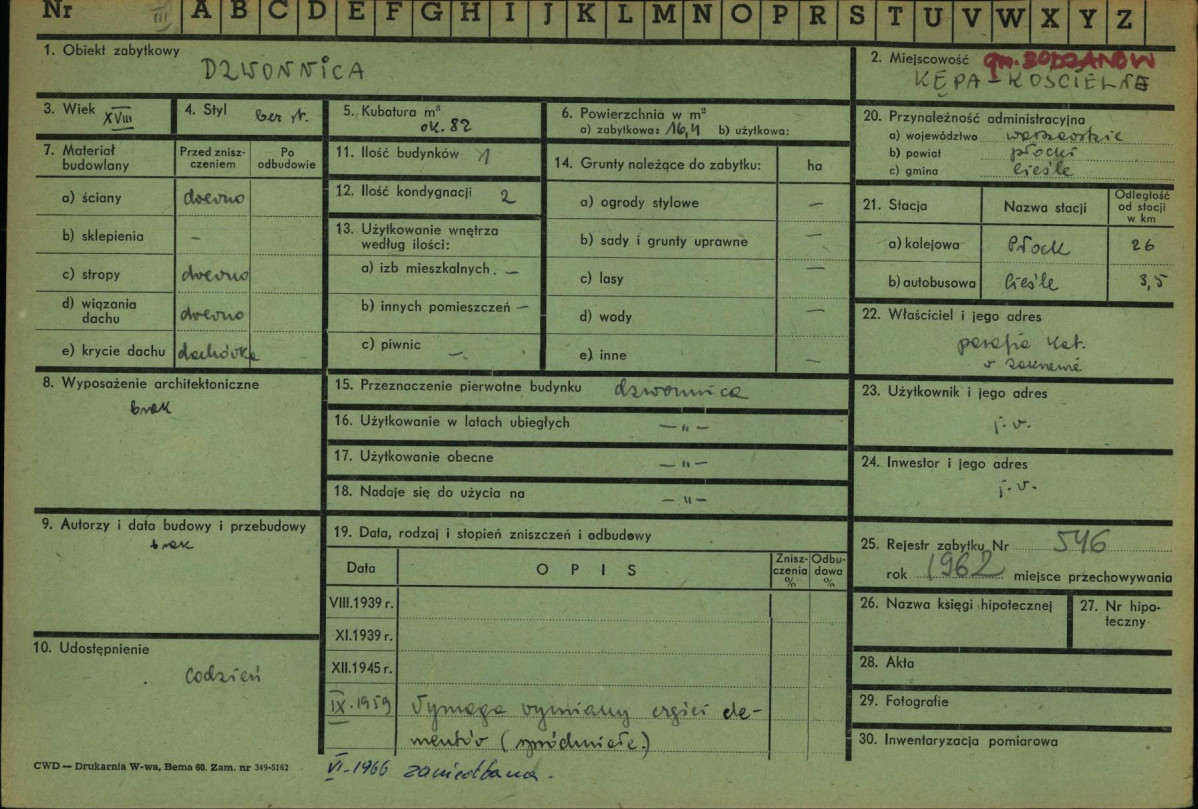 Nr III A B C D E F G H I J K L M N O P R S T U V W X Y Z
1. Obiekt zabytkowy
DZWONNICA
2. Miejscowość gm. BODZANÓW
KĘPA-KOŚCIELNE
3. Wiek XVIII
4. Styl bez st.
5. Kubatura m³
ok. 82
6. Powierzchnia w m²
a) zabytkowa: 16,4 b) użytkowa:
7. Materiał budowlany
Przed zniszczeniem
Po odbudowie
a) ściany drewno
b) sklepienia –
c) stropy drewno
d) wiązania dachu drewno
e) krycie dachu dachówka
8. Wyposażenie architektoniczne
brak
9. Autorzy i data budowy i przebudowy
brak
10. Udostępnienie
codzień
11. Ilość budynków 1
12. Ilość kondygnacji 2
13. Użytkowanie wnętrza
według ilości:
a) izb mieszkalnych. –
b) innych pomieszczeń –
c) piwnic –.
14. Grunty należące do zabytku: ha
a) ogrody stylowe –
b) sady i grunty uprawne –
c) lasy –
d) wody –
e) inne –
15. Przeznaczenie pierwotne budynku dzwonnica
16. Użytkowanie w latach ubiegłych –"–
17. Użytkowanie obecne –"–
18. Nadaje się do użycia na –"–
19. Data, rodzaj i stopień zniszczeń i odbudowy
Data O P I S Zniszczenia % Odbudowa %
VIII.1939 r.
XI.1939 r.
XII.1945 r.
IX.1959 Wymaga wymiany części ele-
mentów (spróchniałe.)
VI-1966 zaniedbana.
20. Przynależność administracyjna
a) województwo warszawskie
b) powiat płocki
c) gmina Cieśle
21. Stacja Nazwa stacji Odległość od stacji w km
a) kolejowa Płock 26
b) autobusowa Cieśle 3,5
22. Właściciel i jego adres
parafia kat.
w Zakrzewie
23. Użytkownik i jego adres
j.w.
24. Inwestor i jego adres
j.w.
25. Rejestr zabytku Nr 546
rok 1962 miejsce przechowywania
26. Nazwa księgi hipotecznej
27. Nr hipo-
teczny
28. Akta
29. Fotografie
30. Inwentaryzacja pomiarowa
CWD — Drukarnia W-wa, Bema 60. Zam. nr 349-5162